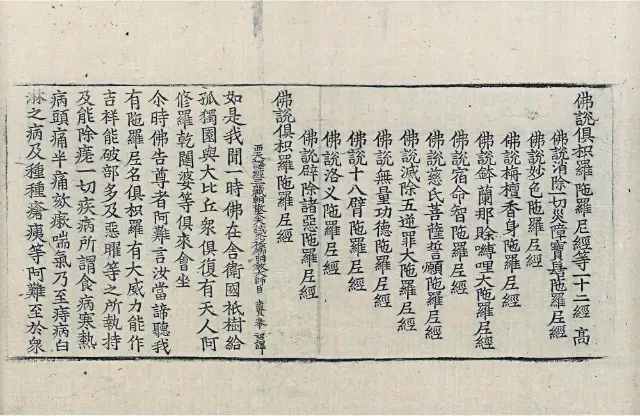 佛說俱枳羅陁羅尼經等一十二經 高
佛說消除一切災障寶髻陁羅尼經
佛說妙色陁羅尼經
佛說栴檀香身陁羅尼經
佛說鉢蘭那賒嚩哩大陁羅尼經
佛說宿命智陁羅尼經
佛說慈氏菩薩誓願陁羅尼經
佛說滅除五逆罪大陁羅尼經
佛說無量功德陁羅尼經
佛說十八臂陁羅尼經
佛說洛叉陁羅尼經
佛說辟除諸惡陁羅尼經
佛說俱枳羅陁羅尼經
西天譯經三藏朝散大夫試鴻臚卿明教大師臣 法賢奉 詔譯
如是我聞一時佛在舍衛國祇樹給
孤獨園與大比丘衆俱復有天人阿
修羅乾闥婆等俱來會坐
尒時佛告尊者阿難言汝當諦聽我
有陁羅尼名俱枳羅有大威力能作
吉祥能破部多及惡曜等之所執持
及能除瘧一切疾病所謂食病寒熱
病頭痛半痛欬瘶喘氣乃至痔病白
淋之病及種種瘡癩等阿難至於衆